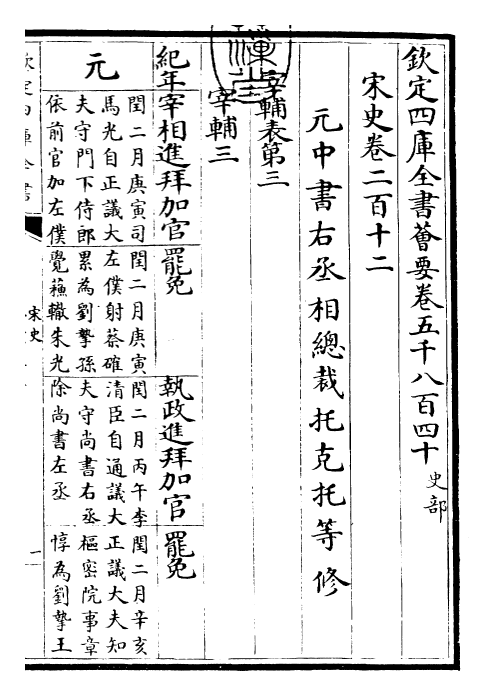 欽定四庫全書薈要卷五千八百四十 史部
宋史卷二百十二
元中書右丞相總裁托克托等修
宰輔表第三
宰輔三
紀年 宰相進拜加官 罷免 執政進拜加官 罷免
元
閏二月庚寅司
馬光自正議大
夫守門下侍郎
依前官加左僕
閏二月庚寅
左僕射蔡確
累為劉摯孫
覺蘓轍朱光
閏二月丙午李
清臣自通議大
夫守尚書右丞
除尚書左丞
閏二月辛亥
正議大夫知
樞密院事章
惇為劉摯王
欽定四庫全書
宋史
一